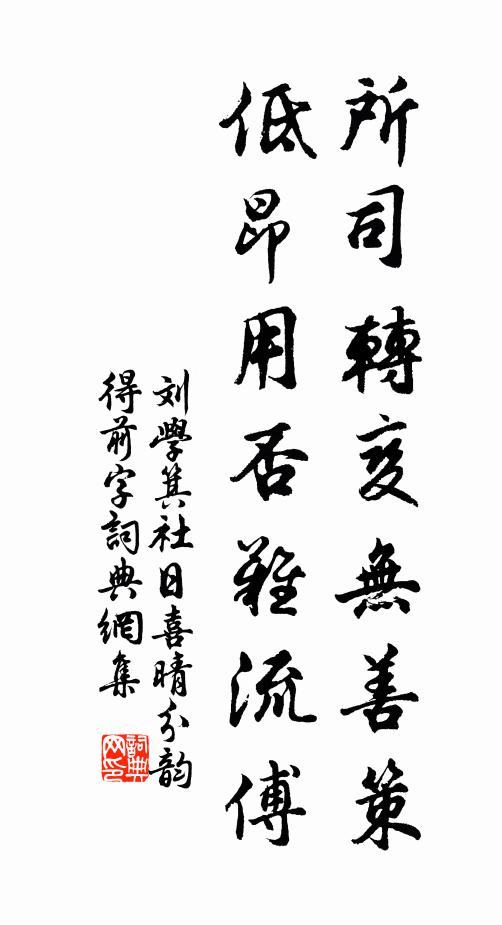 所司轉变無善策
低昂用否難流傅
刘學箕社日喜晴分韵
得前字詞典網集
詞典网印